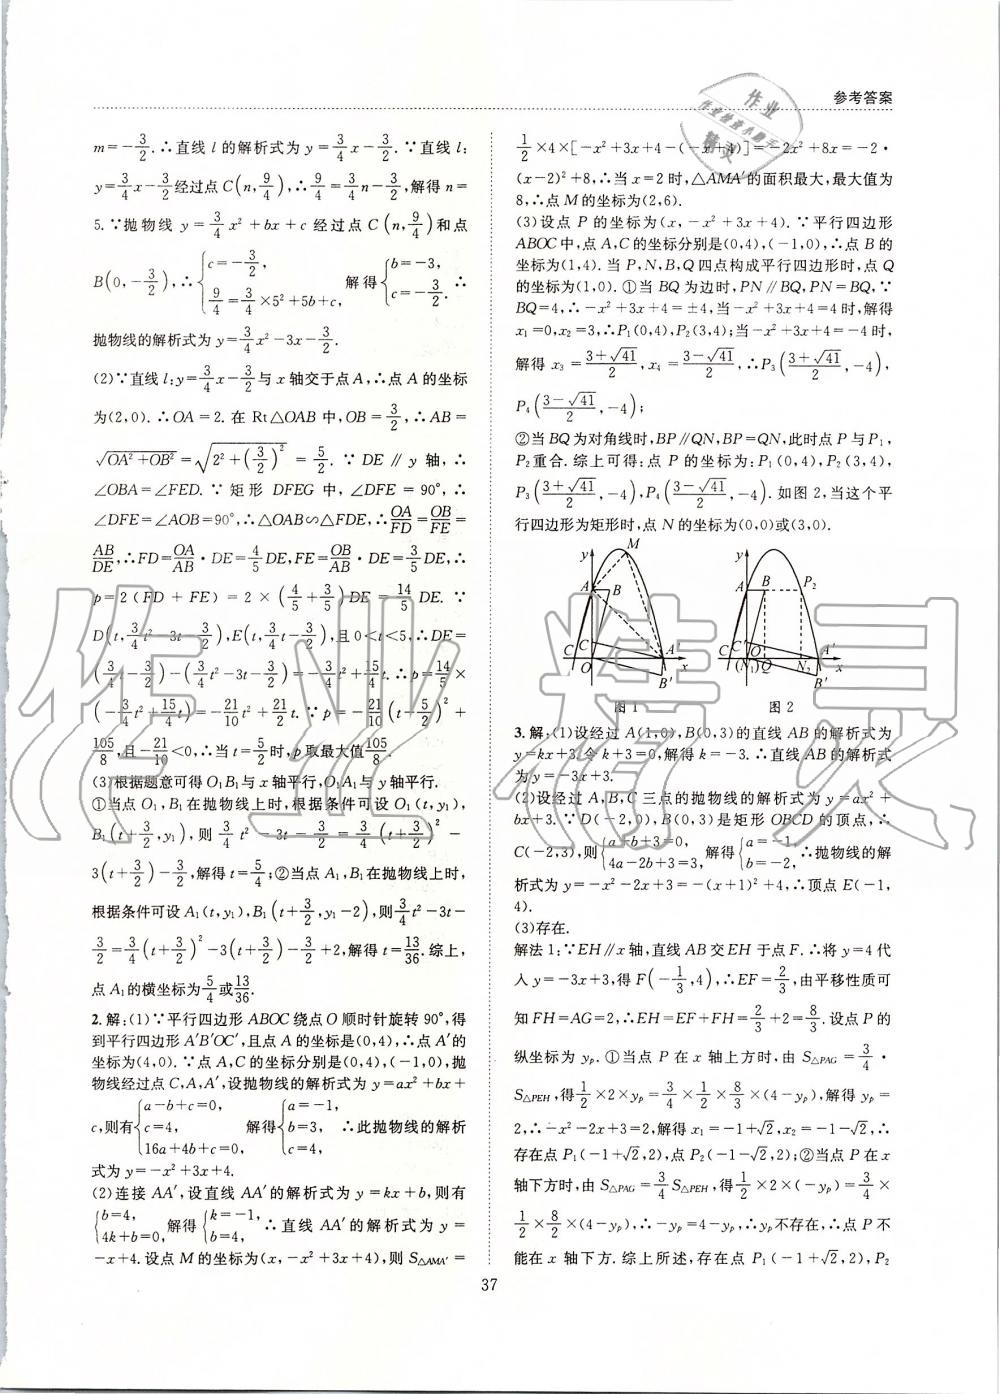 参考答案
m=-3/2.∴直线 l 的解析式为 y=3/4x-3/2.∵直线 l:
y=3/4x-3/2经过点 C(n,9/4),∴9/4=3/4n-3/2,解得 n=
5.∵抛物线 y=3/4x²+bx+c 经过点 C(n,9/4)和点
B(0,-3/2),∴{c=-3/2, 9/4=3/4×5²+5b+c, 解得{b=-3, c=-3/2. ∴
抛物线的解析式为 y=3/4x²-3x-3/2.
(2)∵直线 l:y=3/4x-3/2与 x 轴交于点 A,∴点 A 的坐标
为(2,0).∴OA=2.在 Rt△OAB 中,OB=3/2,∴AB=
√(OA²+OB²)=√(2²+(3/2)²)=5/2.∵DE∥y 轴,∴
∠OBA=∠FED.∵矩形 DFEG 中,∠DFE=90°,∴
∠DFE=∠AOB=90°,∴△OAB∽△FDE,∴OA/FD=OB/FE=
AB/DE,∴FD=OA/AB·DE=4/5DE,FE=OB/AB·DE=3/5DE,∴
p=2(FD+FE)=2×(4/5+3/5)DE=14/5DE.∵
D(t,3/4t²-3t-3/2),E(t,3/4t-3/2),且 0<t<5,∴DE=
(3/4t-3/2)-(3/4t²-3t-3/2)=-3/4t²+15/4t.∴p=14/5×
(-3/4t²+15/4t)=-21/10t²+21/2t.∵p=-21/10(t-5/2)²+
105/8,且-21/10<0,∴当 t=5/2时,p 取最大值105/8.
(3)根据题意可得 O₁B₁与 x 轴平行,O₁A₁与 y 轴平行.
①当点 O₁,B₁在抛物线上时,根据条件可设 O₁(t,y₁),
B₁(t+3/2,y₁),则 3/4t²-3t-3/2=3/4(t+3/2)²-
3(t+3/2)-3/2,解得 t=5/4;②当点 A₁,B₁在抛物线上时,
根据条件可设 A₁(t,y₁),B₁(t+3/2,y₁-2),则3/4t²-3t-
3/2=3/4(t+3/2)²-3(t+3/2)-3/2+2,解得 t=13/36.综上,
点 A₁的横坐标为5/4或13/36.
2.解:(1)∵平行四边形 ABOC 绕点 O 顺时针旋转 90°,得
到平行四边形 A′B′OC′,且点 A 的坐标是(0,4),∴点 A′的
坐标为(4,0).∵点 A,C 的坐标分别是(0,4),(-1,0),抛
物线经过点 C,A,A′,设抛物线的解析式为 y=ax²+bx+
c,则有{a-b+c=0, c=4, 16a+4b+c=0, 解得{a=-1, b=3, c=4, ∴此抛物线的解析
式为 y=-x²+3x+4.
(2)连接 AA′,设直线 AA′的解析式为 y=kx+b,则有
{b=4, 4k+b=0, 解得{k=-1, b=4, ∴直线 AA′的解析式为 y=
-x+4.设点 M 的坐标为(x,-x²+3x+4),则 S△AMA′=
1/2×4×[-x²+3x+4-(-x+4)]=-2x²+8x=-2·
(x-2)²+8,∴当 x=2 时,△AMA′的面积最大,最大值为
8,∴点 M 的坐标为(2,6).
(3)设点 P 的坐标为(x,-x²+3x+4).∵平行四边形
ABOC 中,点 A,C 的坐标分别是(0,4),(-1,0),∴点 B 的
坐标为(1,4).当 P,N,B,Q 四点构成平行四边形时,点 Q
的坐标为(1,0).①当 BQ 为边时,PN∥BQ,PN=BQ,∵
BQ=4,∴-x²+3x+4=±4,当-x²+3x+4=4 时,解得
x₁=0,x₂=3,∴P₁(0,4),P₂(3,4);当-x²+3x+4=-4 时,
解得 x₃=(3+√41)/2,x₄=(3-√41)/2,∴P₃((3+√41)/2,-4),
P₄((3-√41)/2,-4);
②当 BQ 为对角线时,BP∥QN,BP=QN,此时点 P 与 P₁,
P₂重合.综上可得:点 P 的坐标为:P₁(0,4),P₂(3,4),
P₃((3+√41)/2,-4),P₄((3-√41)/2,-4).如图 2,当这个平
行四边形为矩形时,点 N 的坐标为(0,0)或(3,0).
y M A B C C′ O A′ x B′
图 1
y A B P₂ C C′ O (N₁) Q N₂ A′ x B′
图 2
3.解:(1)设经过 A(1,0),B(0,3)的直线 AB 的解析式为
y=kx+3.令 k+3=0,解得 k=-3.∴直线 AB 的解析式
为 y=-3x+3.
(2)设经过 A,B,C 三点的抛物线的解析式为 y=ax²+
bx+3.∵D(-2,0),B(0,3)是矩形 OBCD 的顶点,∴
C(-2,3),则{a+b+3=0, 4a-2b+3=3, 解得{a=-1, b=-2, ∴抛物线的解
析式为 y=-x²-2x+3=-(x+1)²+4,∴顶点 E(-1,
4).
(3)存在.
解法 1:∵EH∥x 轴,直线 AB 交 EH 于点 F.∴将 y=4 代
入 y=-3x+3,得 F(-1/3,4),∴EF=2/3,由平移性质可
知 FH=AG=2,∴EH=EF+FH=2/3+2=8/3.设点 P 的
纵坐标为 yₚ.①当点 P 在 x 轴上方时,由 S△PAG=3/4·
S△PEH,得1/2×2×yₚ=3/4×1/2×8/3×(4-yₚ),解得 yₚ=
2,∴-x²-2x+3=2,解得 x₁=-1+√2,x₂=-1-√2,∴
存在点 P₁(-1+√2,2),点 P₂(-1-√2,2);②当点 P 在 x
轴下方时,由 S△PAG=3/4S△PEH,得1/2×2×(-yₚ)=3/4×
1/2×8/2×(4-yₚ),∴-yₚ=4-yₚ,∴yₚ不存在,∴点 P 不
能在 x 轴下方.综上所述,存在点 P₁(-1+√2,2),P₂
37
作业精灵